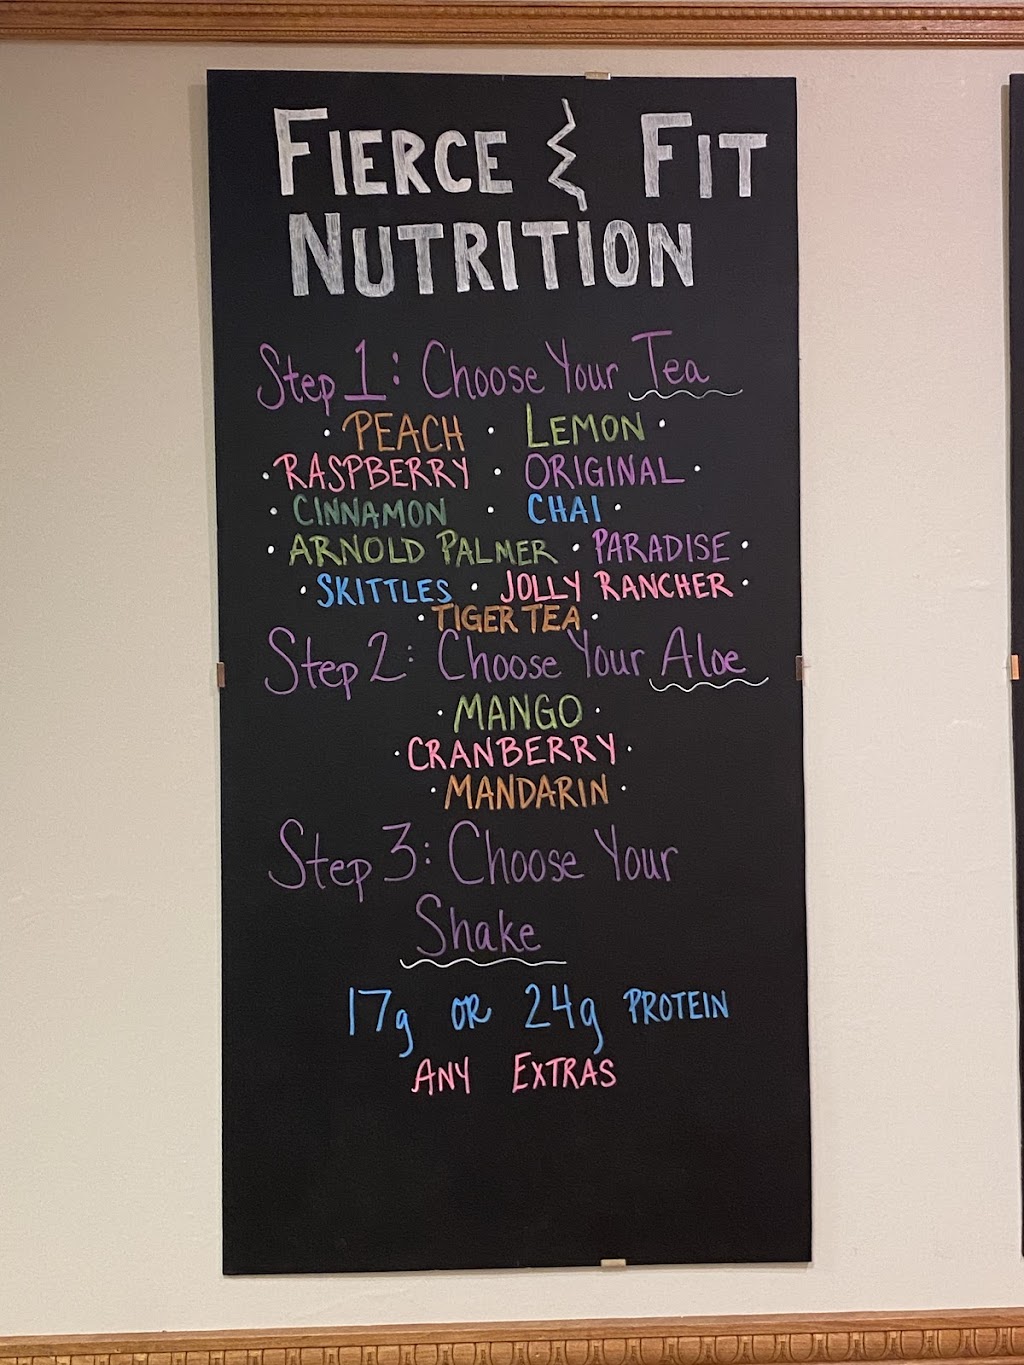 FIERCE & FIT
NUTRITION
Step 1: Choose Your Tea
· PEACH · LEMON ·
· RASPBERRY · ORIGINAL ·
· CINNAMON · CHAI ·
· ARNOLD PALMER · PARADISE ·
· SKITTLES · JOLLY RANCHER ·
· TIGER TEA ·
Step 2: Choose Your Aloe
· MANGO ·
· CRANBERRY ·
· MANDARIN ·
Step 3: Choose Your
Shake
17g OR 24g PROTEIN
ANY EXTRAS